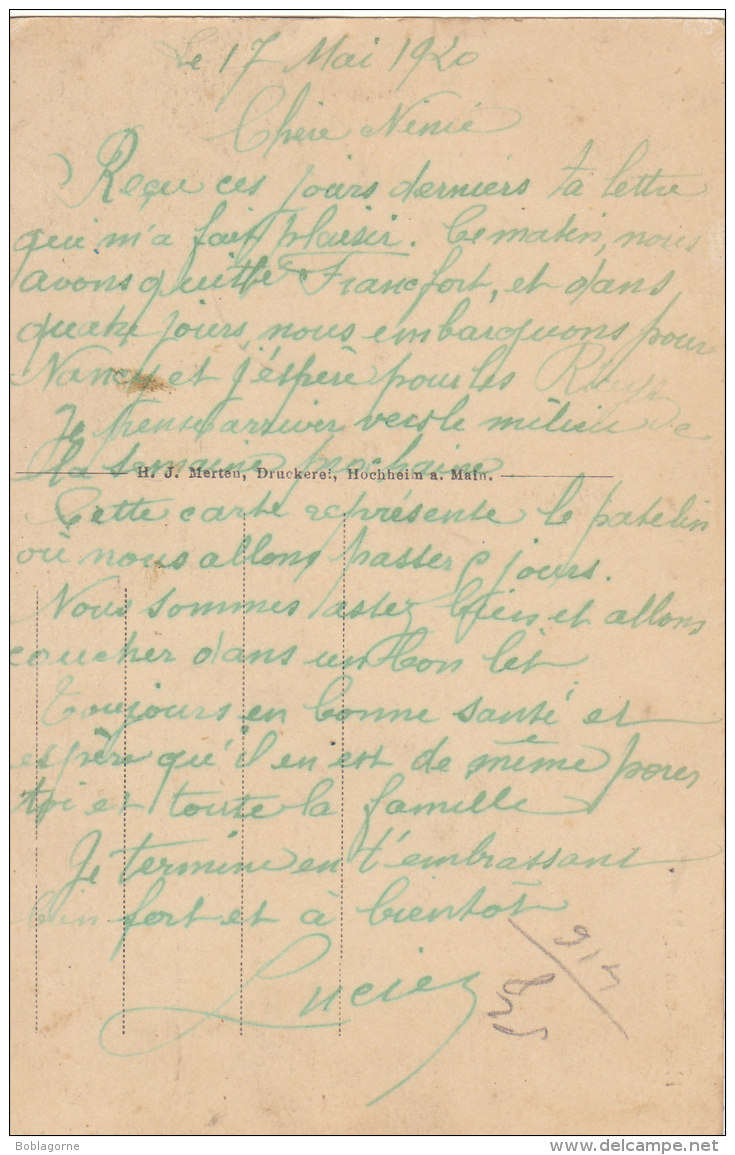 Le 17 Mai 1920
Chère Ninie
Reçu ces jours derniers ta lettre
qui m'a fait plaisir. Ce matin, nous
avons quitté Francfort, et dans
quatre jours, nous embarquons pour
Nancy et j'espère pour les
Je pense arriver vers le milieu de
la semaine prochaine
H. J. Merten, Druckerei, Hochheim a. Main.
Cette carte représente le patelin
où nous allons passer jours.
Nous sommes assez bien et allons
coucher dans un bon lit
Toujours en bonne santé et
espère qu'il en est de même pour
toi et toute la famille
Je termine en t'embrassant
bien fort et à bientôt
Lucien
Boblagorne
delcampe.net